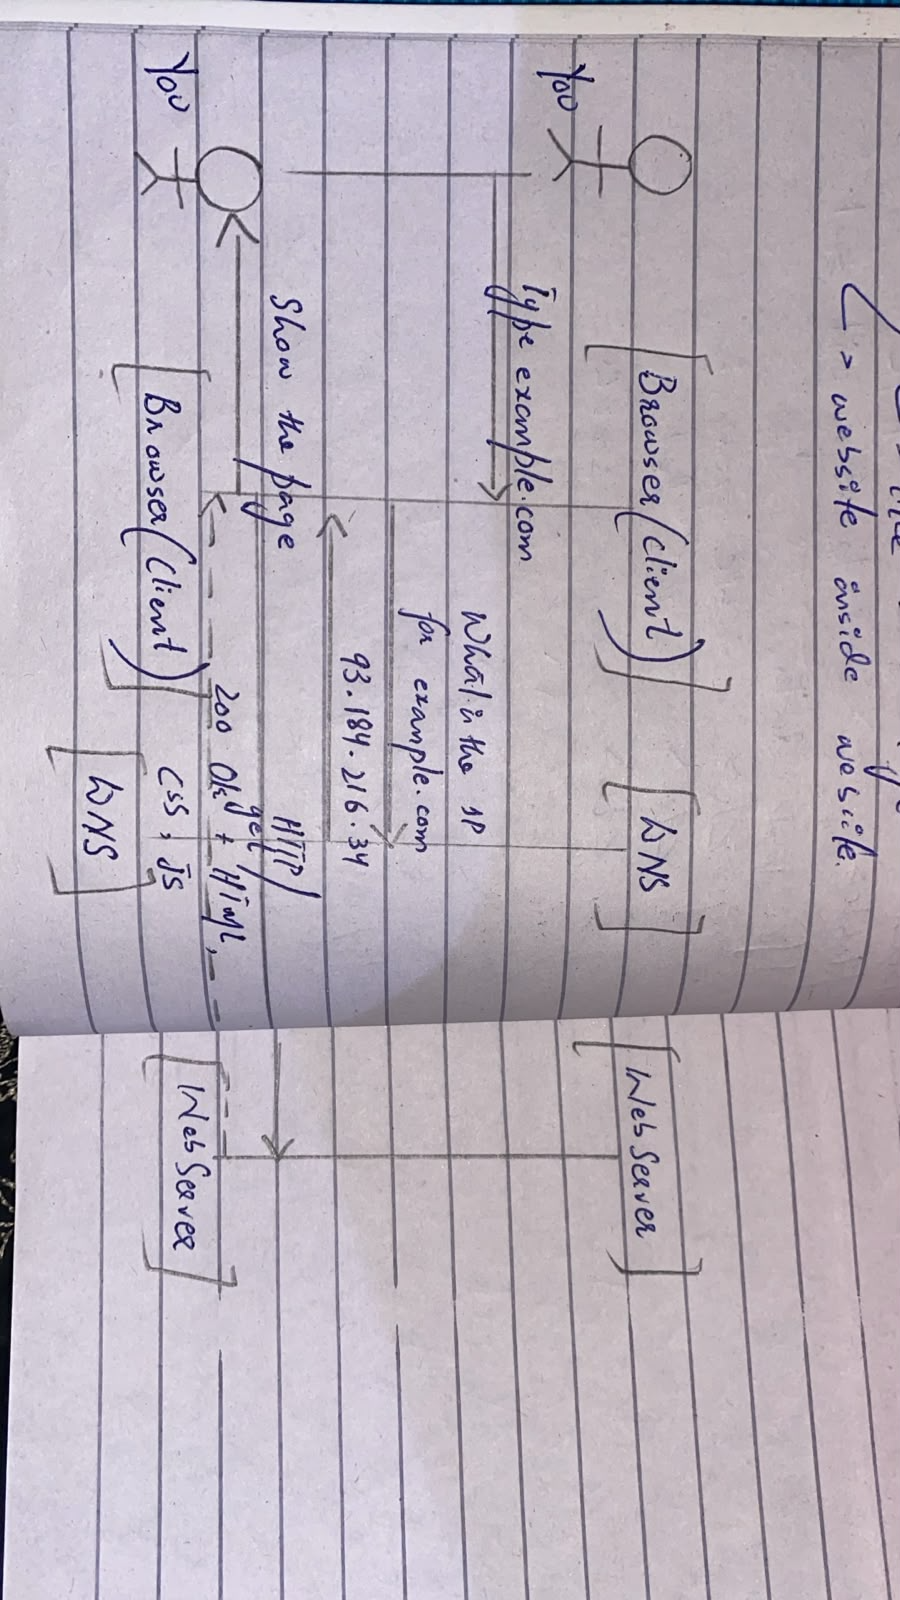 > website inside website.
You
[Browser(Client)]
[DNS]
[Web Server]
Type example.com
What is the IP
for example.com
93.184.216.34
HTTP/
get
Show the page
200 Ok + HTML,
CSS, JS
You
[Browser(Client)]
[DNS]
[Web Server]